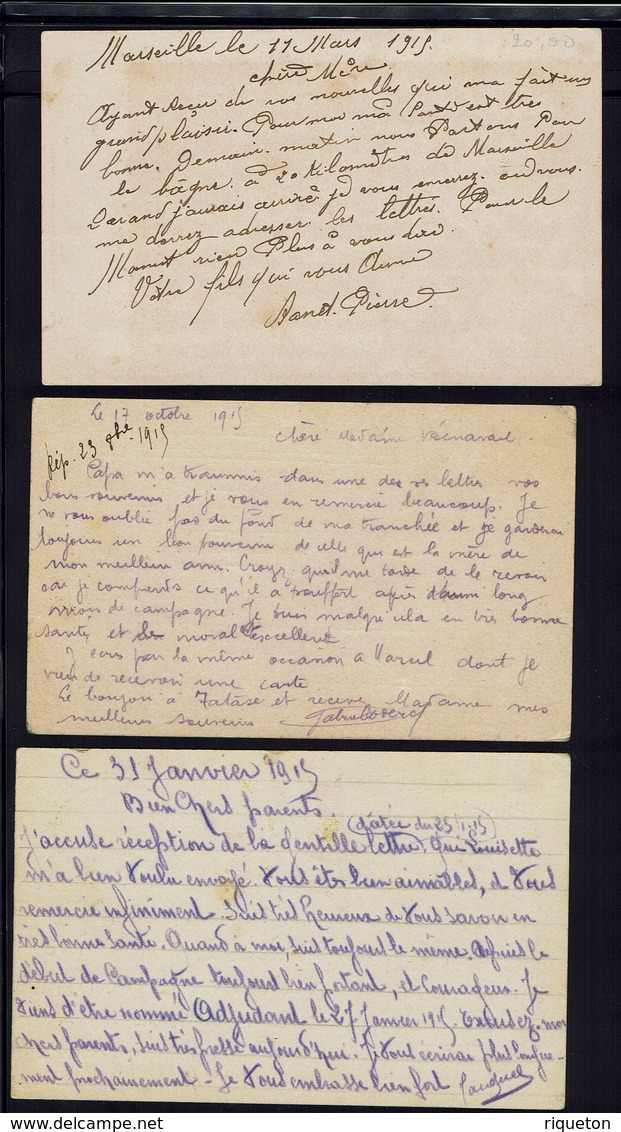 Marseille le 11 Mars 1915.
20,00
chère Mère
Ayant Reçu de vos nouvelles qui ma fait un
grand plaisir. Pour moi ma Santé est très
bonne. Demain matin nous Partons Pour
le bâgne à 20 Kilomètres de Marseille
Quand j'aurais arrivé je vous enverrez
me devrez adresser les lettres. Pour le
Moment rien Plus à vous dire.
Votre fils qui vous aime
Pierre.
Le 17 octobre 1915
Rép. 23 9bre 1915
Chère Madame
Papa m'a transmis dans une de ses lettres vos
bons souvenirs et je vous en remercie beaucoup. Je
ne vous oublie pas du fond de ma tranchée et je garderai
toujours un bon souvenir de celle qui est la mère de
mon meilleur ami. Croyez qu'il me tarde de le revoir
car je comprends ce qu'il a souffert après d'aussi long
mois de campagne. Je suis malgré cela en très bonne
santé, et le moral est excellent
J'écris par la même occasion à Marcel dont je
viens de recevoir une carte
Le bonjour à Tatase et recevez Madame mes
meilleurs souvenirs
Ce 31 Janvier 1915
Bien Chers parents,
(datée du 25/1/15)
J'accuse réception de la gentille lettre, que Louisette
m'a bien voulu envoyé. Vous êtes bien aimables, et Vous
remercie infiniment. Suis très heureux de Vous savoir en
très bonne santé. Quand à moi, suis toujours le même. Depuis le
début de Campagne toujours bien portant, et Courageux. Je
viens d'être nommé Adjudant le 27 Janvier 1915. Excusez-moi
chers parents, suis très pressé aujourd'hui. Je Vous écrirai plus longue-
ment prochainement - Je Vous embrasse bien fort Jacques
delcampe.net
riqueton